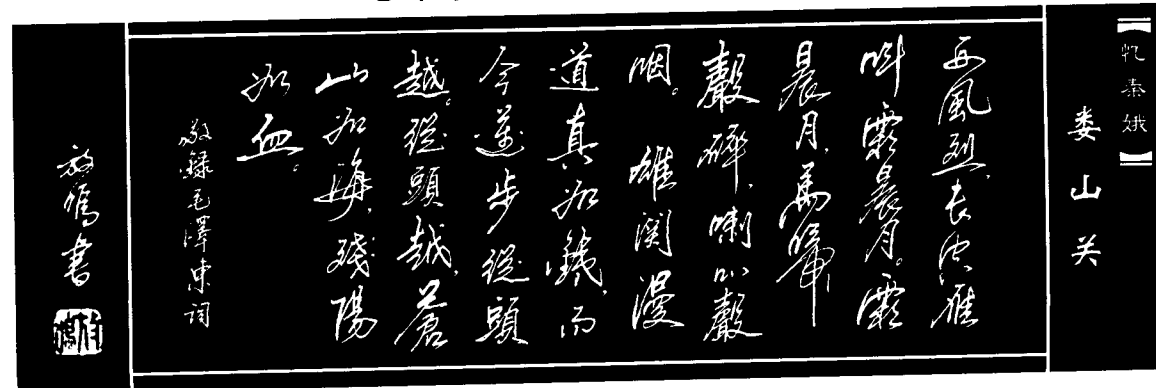 【忆秦娥】
娄山关
西風烈，長空雁
叫霜晨月。霜
晨月，馬蹄
聲碎，喇叭聲
咽。 雄關漫
道真如鐵，而
今邁步從頭
越。從頭越，蒼
山如海，殘陽
如血。
敬錄毛澤東詞
書